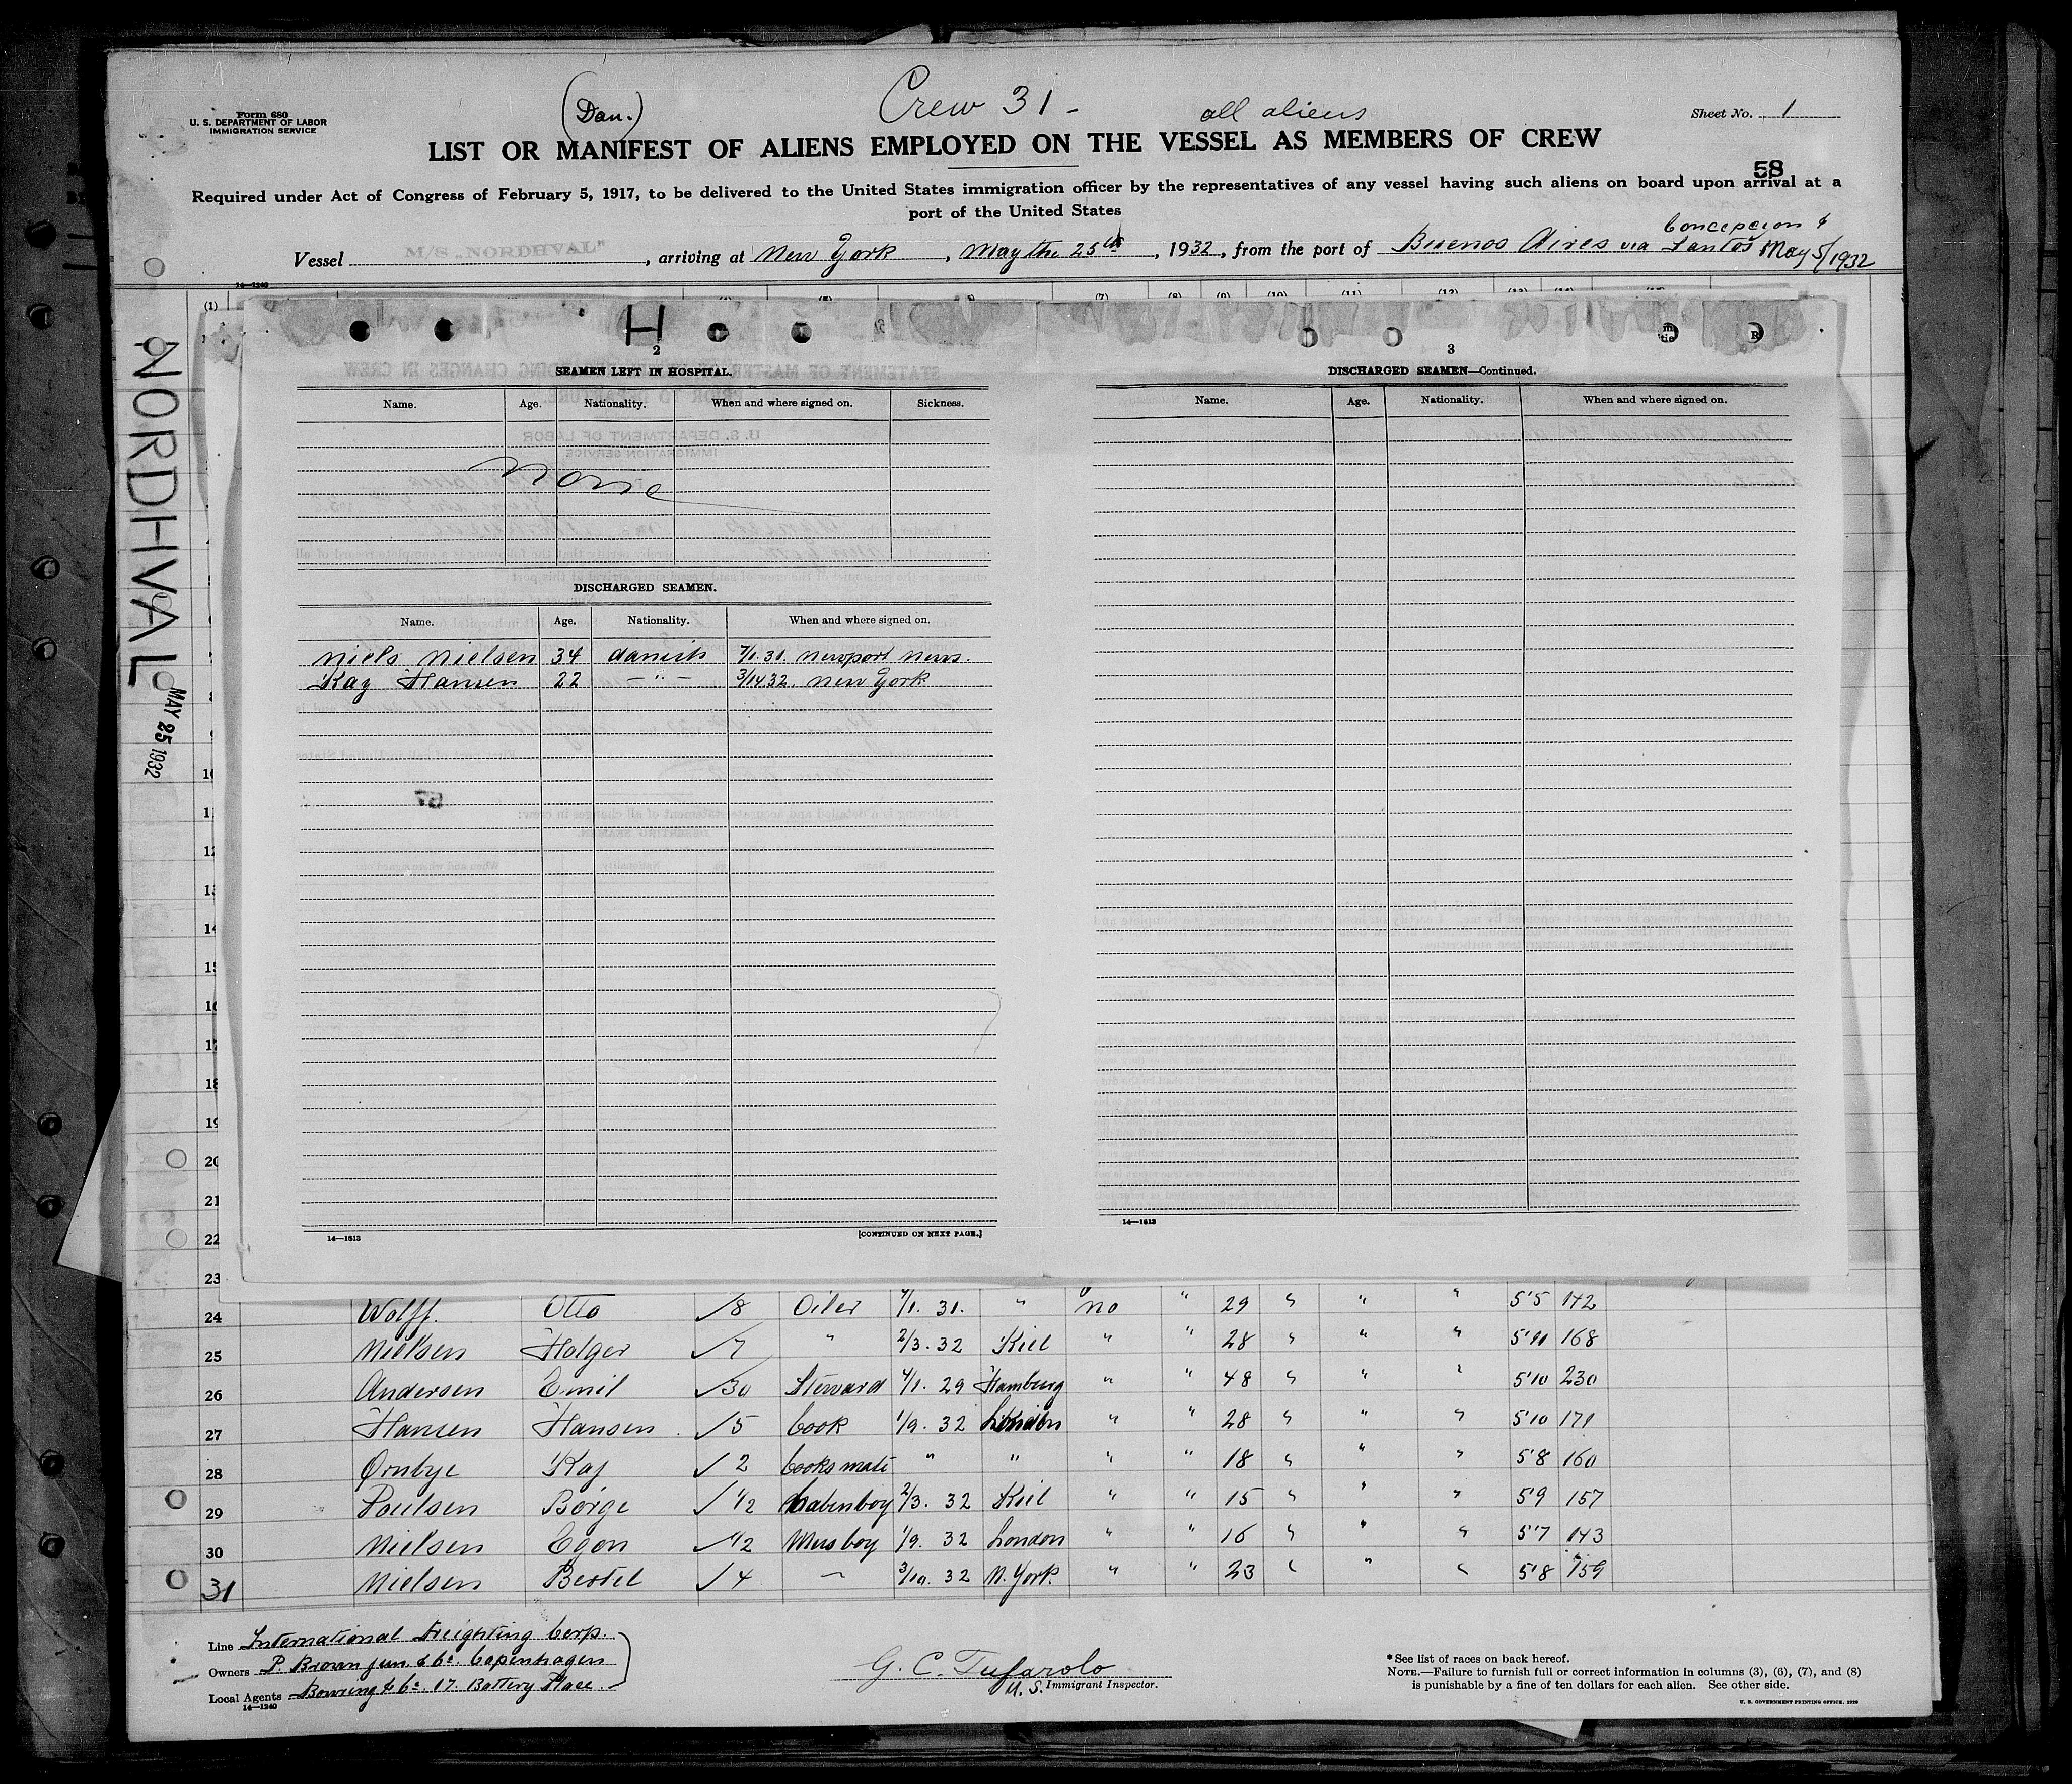 Form 680
U. S. DEPARTMENT OF LABOR
IMMIGRATION SERVICE
(Dan.)
Crew 31 -
all aliens
Sheet No. 1
LIST OR MANIFEST OF ALIENS EMPLOYED ON THE VESSEL AS MEMBERS OF CREW
58
Required under Act of Congress of February 5, 1917, to be delivered to the United States immigration officer by the representatives of any vessel having such aliens on board upon arrival at a
port of the United States
Concepcion &
Vessel M/S „NORDHVAL", arriving at New York, May the 25th, 1932, from the port of Buenos Aires via Santos May 5/1932
14—1240
(1) (7) (8) (9) (10) (11) (12)
NORDHVAL
MAY 25 1932
H
2
SEAMEN LEFT IN HOSPITAL.
Name. Age. Nationality. When and where signed on. Sickness.
None
DISCHARGED SEAMEN.
Name. Age. Nationality. When and where signed on.
Niels Nielsen 34 danish 7/1.31. Newport News.
Kaj Hansen 22 — " — 3/14 32. New York
14—1613
[CONTINUED ON NEXT PAGE.]
3
DISCHARGED SEAMEN—Continued.
Name. Age. Nationality. When and where signed on.
14—1613
10
11
12
13
14
15
16
17
18
19
20
21
22
23
24 Wolff. Otto √8 Oiler 4/1. 31. " no " 29 " " " 5'5 142
25 Nielsen Holger √7 " 2/3. 32 Kiel " " 28 " " " 5'11 168
26 Andersen Emil √30 Steward 4/1. 29 Hamburg " " 48 " " " 5'10 230
27 Hansen Hansen √5 Cook 1/9. 32 London " " 28 " " " 5'10 171
28 Ørnbye Kaj √2 Cooks mate " " " " 18 " " " 5'8 160
29 Poulsen Börge √1/2 Cabinboy 2/3. 32 Kiel " " 15 " " " 5'9 157
30 Nielsen Egon √1/2 Messboy 1/9. 32 London " " 16 " " " 5'7 143
31 Nielsen Bertel √4 — 3/10. 32 N. York " " 23 " " " 5'8 159
Line International Freighting Corp.
Owners P. Brown jun. & Co. Copenhagen
Local Agents Bowring & Co. 17 Battery Place
14—1240
G. C. Tufarolo
U. S. Immigrant Inspector.
* See list of races on back hereof.
NOTE.—Failure to furnish full or correct information in columns (3), (6), (7), and (8)
is punishable by a fine of ten dollars for each alien. See other side.
U. S. GOVERNMENT PRINTING OFFICE. 1929